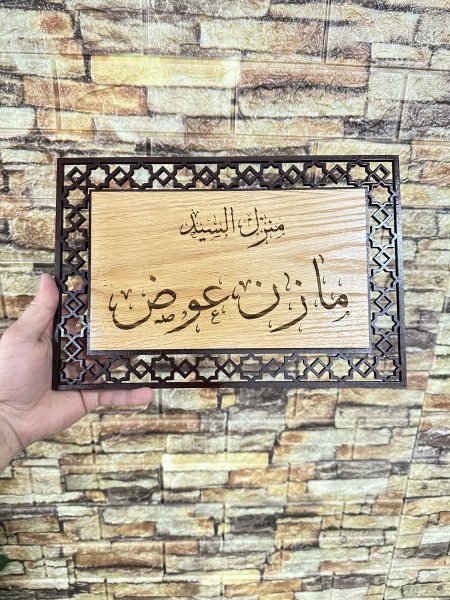 منزل السيد
مازن عوض